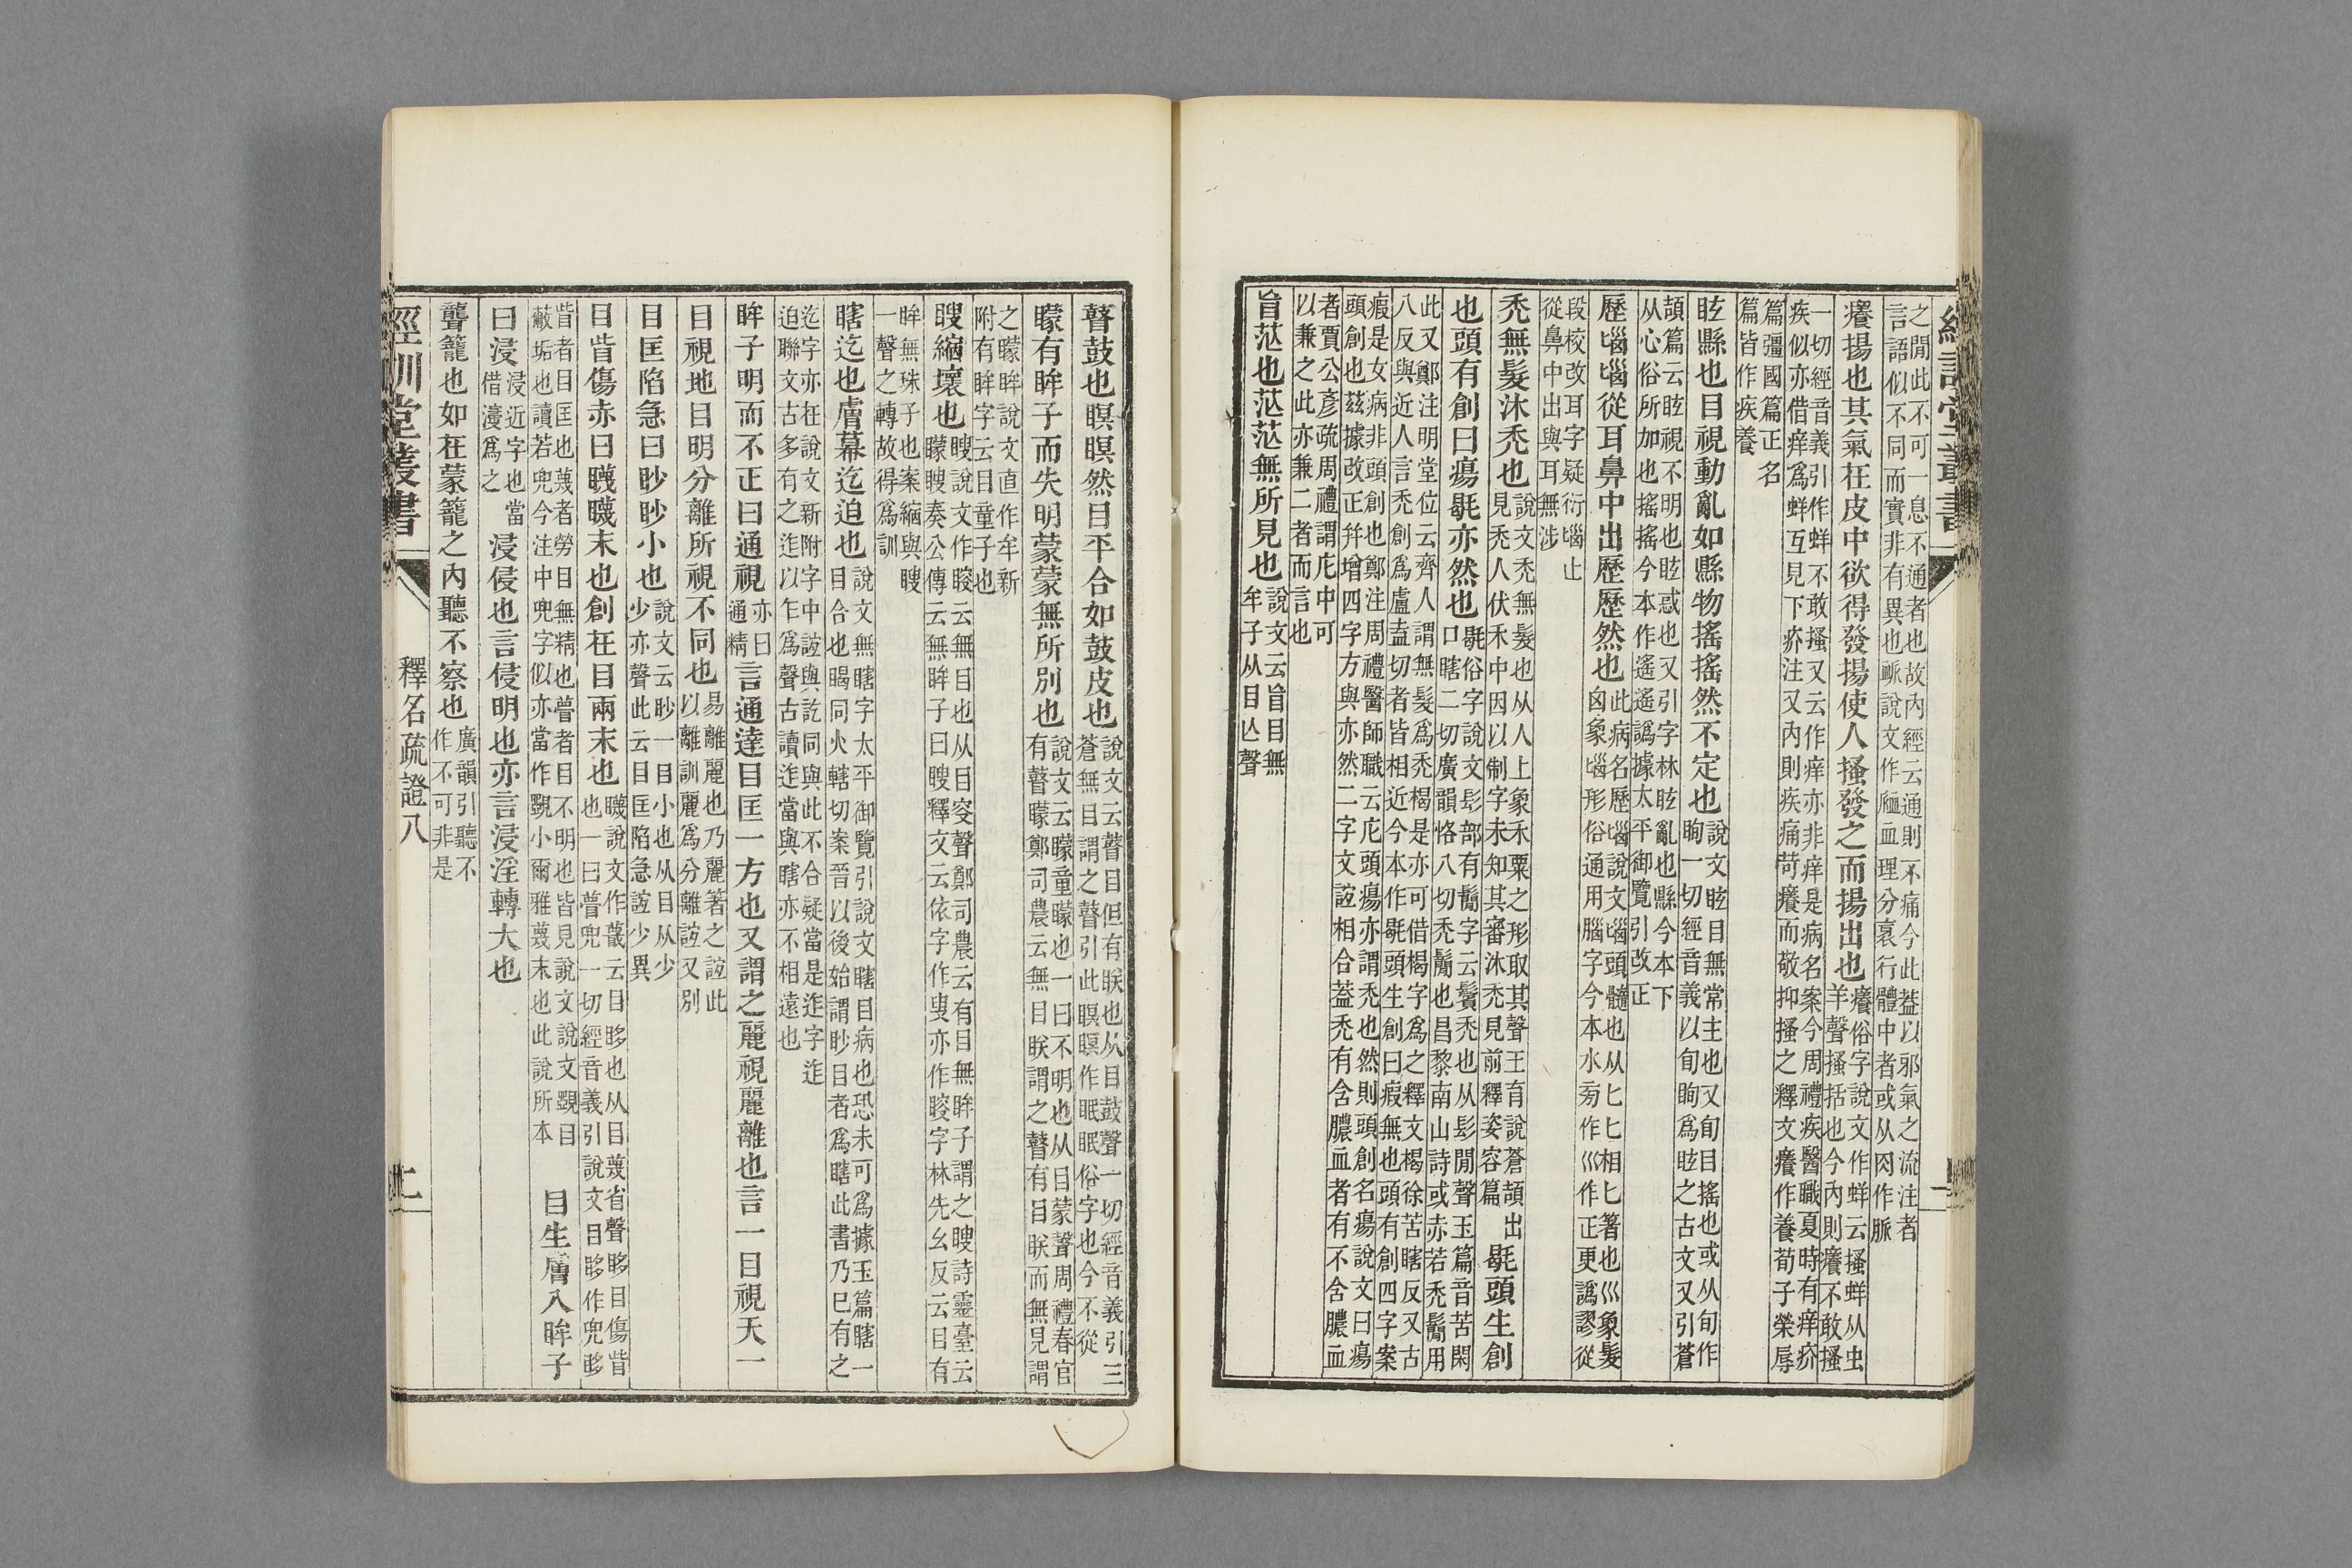 之閒此不可一息不通者也故內經云通則不痛今此葢以邪氣之流注者
言語似不同而實非有異也𧖴說文作𧖴血理分衺行體中者或从肉作脈
癢揚也其氣在皮中欲得發揚使人搔發之而揚出也癢俗字說文作蛘云搔蛘从虫
羊聲搔括也今內則癢不敢搔
一切經音義引作蛘不敢搔又云作痒亦非痒是病名案今周禮疾醫職夏時有痒疥
疾似亦借痒爲蛘互見下疥注又內則疾痛苛癢而敬抑搔之釋文癢作養荀子榮辱
篇彊國篇正名
篇皆作疾養
眩縣也目視動亂如縣物搖搖然不定也說文眩目無常主也又旬目搖也或从旬作
眴一切經音義以旬眴爲眩之古文又引蒼
頡篇云眩視不明也眩惑也又引字林眩亂也縣今本下
从心俗所加也搖搖今本作遙遙譌據太平御覽引改正
歷𡿺𡿺從耳鼻中出歷歷然也此病名歷𡿺說文𡿺頭髓也从匕匕相匕箸也巛象髮
囟象𡿺形俗通用腦字今本水旁作巛作正更譌謬從
段校改耳字疑衍𡿺止
從鼻中出與耳無涉
禿無髮沐禿也說文禿無髮也从人上象禾粟之形取其聲王育說蒼頡出
見禿人伏禾中因以制字未知其審沐禿見前釋姿容篇
毼頭生創
也頭有創曰瘍毼亦然也毼俗字說文髟部有鬜字云鬢禿也从髟閒聲玉篇音苦閑
口瞎二切廣韻恪八切禿鬜也昌黎南山詩或赤若禿鬜用
此又鄭注明堂位云齊人謂無髮爲禿楬是亦可借楬字爲之釋文楬徐苦瞎反又古
八反與近人言禿創爲盧盍切者皆相近今本作毼頭生創曰瘕無也頭有創四字案
瘕是女病非頭創也鄭注周禮醫師職云庀頭瘍亦謂禿也然則頭創名瘍說文曰瘍
頭創也茲據改正幷增四字方與亦然二字文誼相合葢禿有含膿血者有不含膿血
者賈公彥疏周禮謂庀中可
以兼之此亦兼二者而言也
盲茫也茫茫無所見也說文云盲目無
牟子从目亾聲
瞽鼓也瞑瞑然目平合如鼓皮也說文云瞽目但有眹也从目鼓聲一切經音義引三
蒼無目謂之瞽引此瞑瞑作眠眠俗字也今不從
矇有眸子而失明蒙蒙無所別也說文云矇童矇也一曰不明也从目蒙聲周禮春官
有瞽矇鄭司農云無目眹謂之瞽有目眹而無見謂
之矇眸說文直作牟新
附有眸字云目童子也
瞍縮壞也瞍說文作䀇云無目也从目㚇聲鄭司農云有目無眸子謂之瞍詩靈臺云
矇瞍奏公傳云無眸子曰瞍釋文云依字作叟亦作䀇字林先么反云目有
眸無珠子也案縮與瞍
一聲之轉故得爲訓
瞎迄也膚幕迄迫也說文無瞎字太平御覽引說文瞎目病也恐未可爲據玉篇瞎一
目合也暍同火轄切案晉以後始謂眇目者爲瞎此書乃巳有之
迄字亦在說文新附字中誼與訖同與此不合疑當是迮字迮
迫聯文古多有之迮以乍爲聲古讀迮當與瞎亦不相遠也
眸子明而不正曰通視亦曰
通精言通達目匡一方也又謂之麗視麗離也言一目視天一
目視地目明分離所視不同也易離麗也乃麗著之誼此
以離訓麗爲分離誼又別
目匡陷急曰眇眇小也說文云眇一目小也从目从少
少亦聲此云目匡陷急誼少異
目眥傷赤曰䁾䁾末也創在目兩末也䁾說文作蔑云目眵也从目蔑省聲眵目傷眥
也一曰瞢兜一切經音義引說文目眵作兜眵
眥者目匡也蔑者勞目無精也瞢者目不明也皆見說文說文覴目
蔽垢也讀若兜今注中兜字似亦當作覴小爾雅蔑末也此說所本
目生膚入眸子
曰浸浸近字也當
借濅爲之
浸侵也言侵明也亦言浸淫轉大也
聾籠也如在蒙籠之內聽不察也廣韻引聽不
作不可非是
經訓堂叢書
釋名疏證八
二